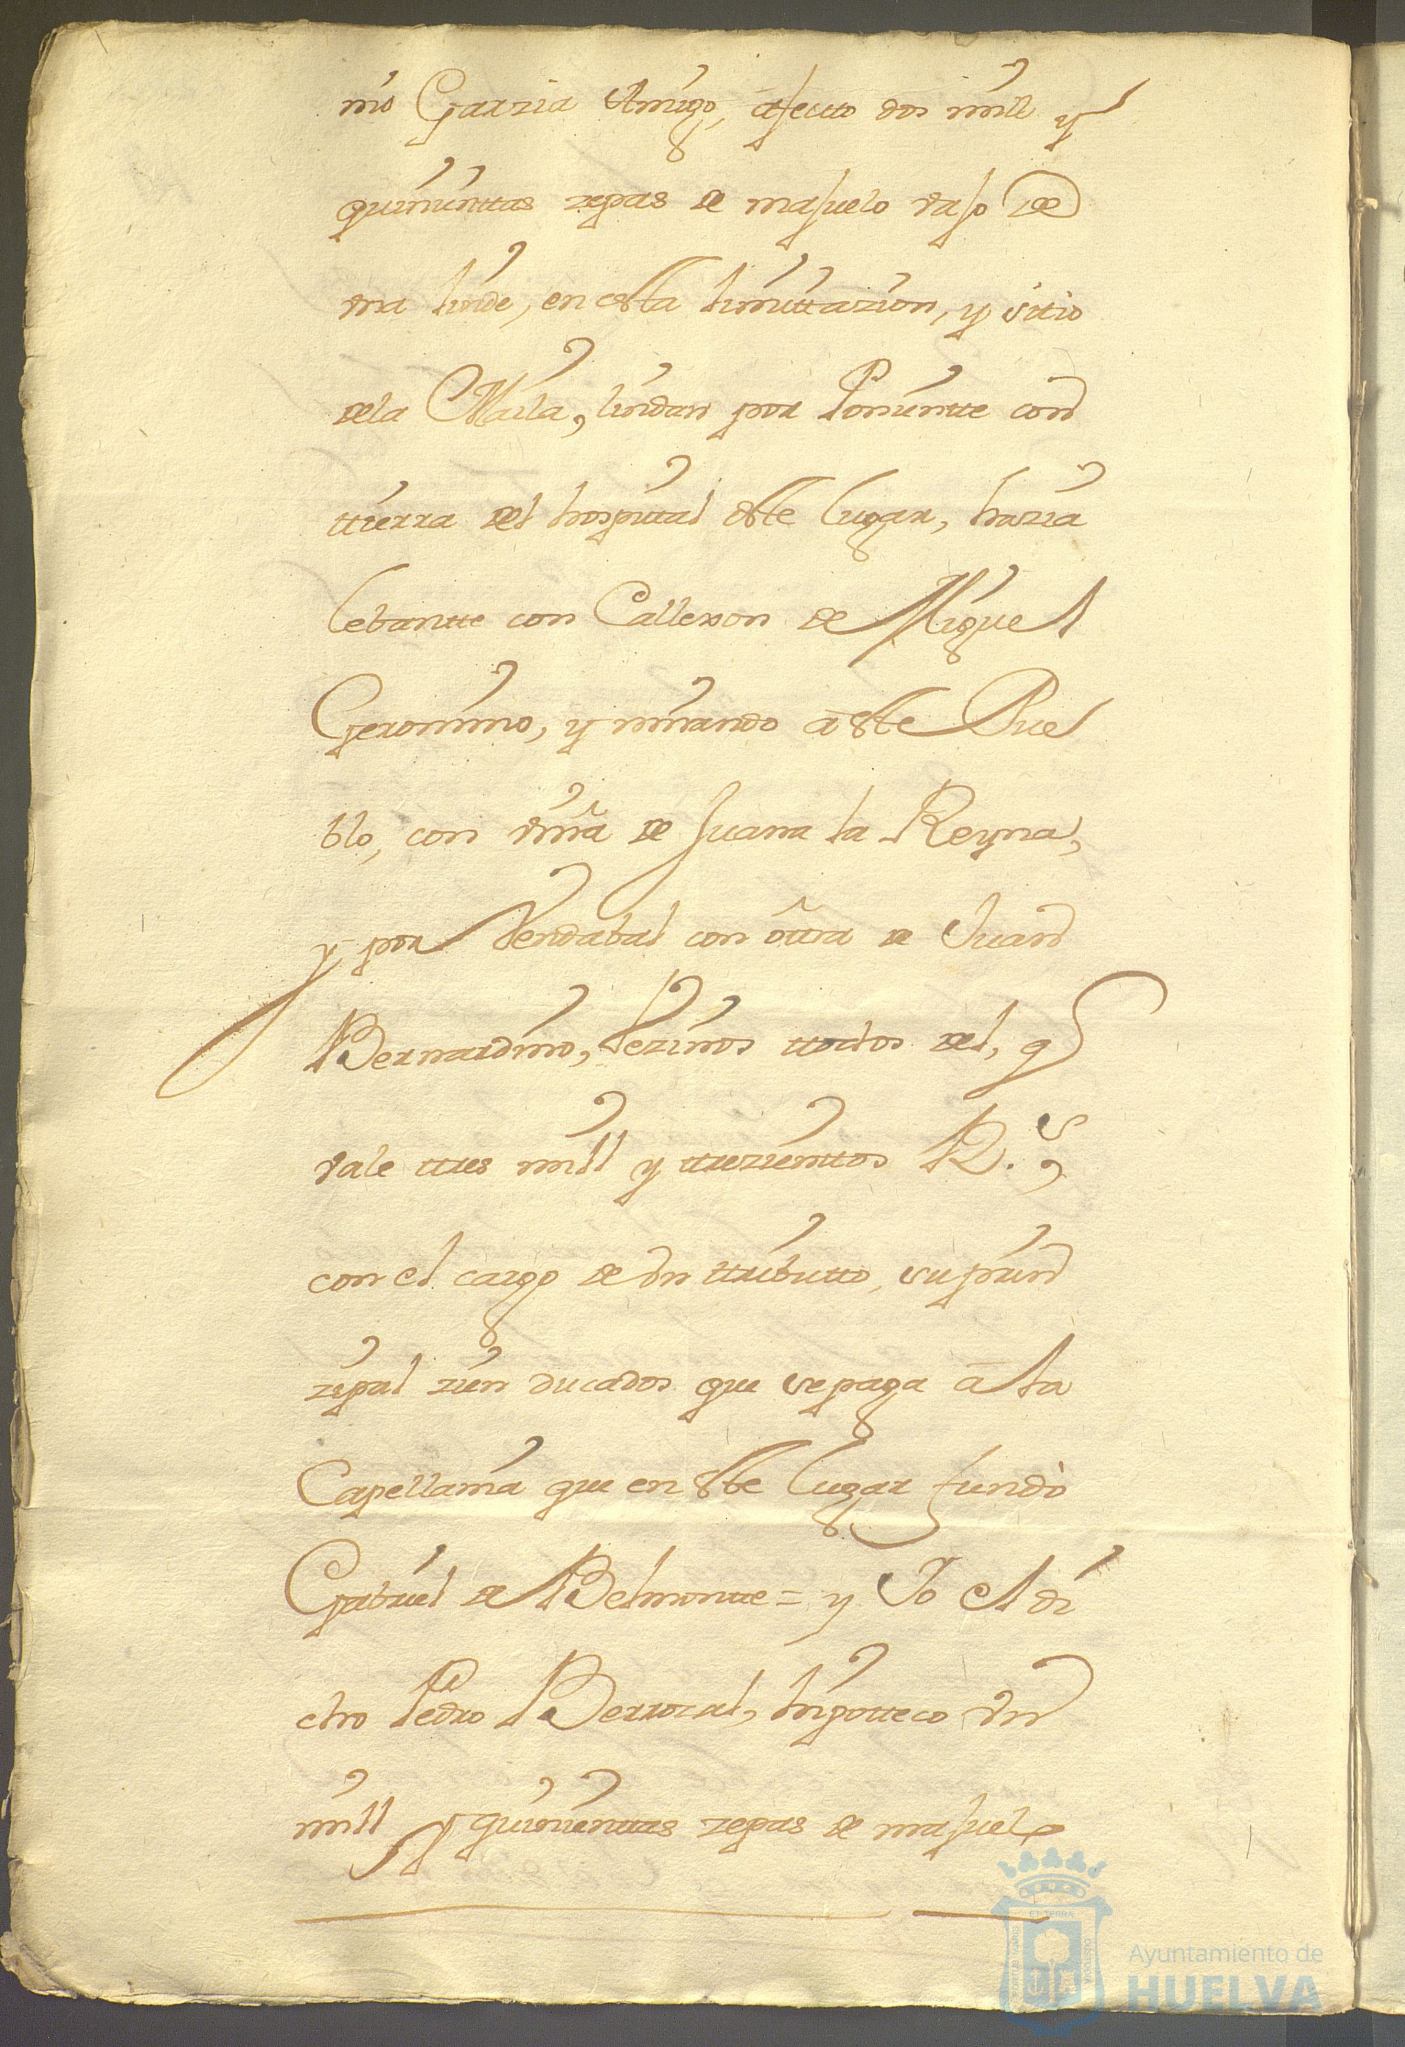 nio Garzia Amigo, afecto dos mill y
quinienttas zepas de majuelo vajo de
vna linde, en esta limittazion, y sitio
dela Maila, lindan por Ponientte con
ttierra del hospital este lugar, hazia
lebantte con Callexon de Miguel
Geronimo, y mirando a este Pue
blo, con viña de Juana la Reyna,
y por Vendabal con ottra de Juan
Bernardino, Vezinos ttodos del, q
vale ttres mill y ttrezienttos R.s
con el cargo de vn ttributto, su prin
zipal zien ducados que se paga a la
Capellania que en este lugar fundò
Gabriel de Belmontte = y Yo el di
cho Pedro Berrocal, hipotteco vn
mill y quinienttas zepas de majuelo
Ayuntamiento de
HUELVA